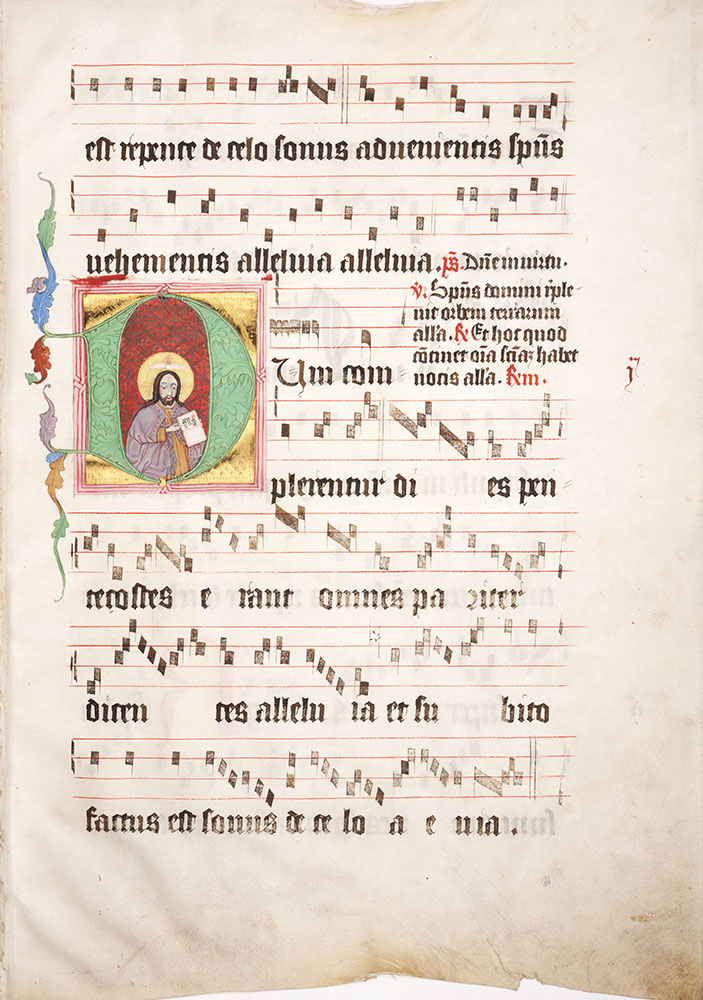 est repente de celo sonus advenientis spũs
vehementis alleluia alleluia. p̃s. Dñe in virtu.
v̂. Spũs domini r̃ple
vit orbem terrarum
alľa. R̃ Et hoc quod
cõtinet oĩa sciaʒ habet
vocis alľa. R̃m.
Dum com
plerentur di es pen
tecostes e rant omnes pa riter
dicen tes allelu ia et su bito
factus est sonus de ce lo a e uia.